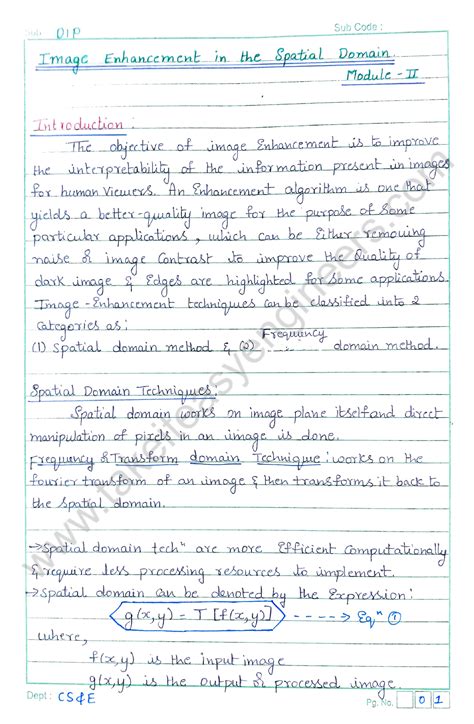 Sub: DIP
Sub Code :
Image Enhancement in the Spatial Domain
Module - II
Introduction :
The objective of image Enhancement is to improve
the interpretability of the information present in images
for human viewers. An Enhancement algorithm is one that
yields a better-quality image for the purpose of Some
particular applications, which can be Either removing
noise & image Contrast to improve the Quality of
dark image & Edges are highlighted for some applications.
Image-Enhancement techniques can be classified into 2
Categories as:
(1) Spatial domain method & (2) Frequency domain method.
Spatial Domain Techniques:
Spatial domain works on image plane itself and direct
manipulation of pixels in an image is done.
Frequency & Transform domain Technique: works on the
fourier transform of an image & then transforms it back to
the spatial domain.
→Spatial domain techⁿ are more Efficient Computationally
& require less processing resources to implement.
→Spatial domain can be denoted by the Expression:
g(x,y) = T[f(x,y)] ----> Eqⁿ ①
where,
f(x,y) is the input image
g(x,y) is the output & processed image.
Dept : CS&E
Pg. No. 0 1
www.takeiteasyengineers.com